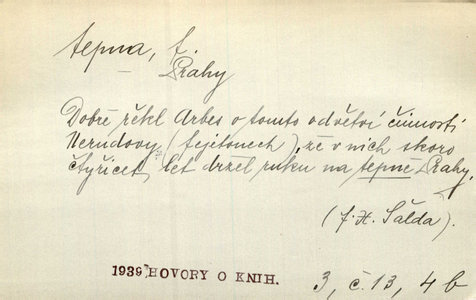 tepna, f.
Prahy
Dobře řekl Arbes o tomto odvětví činnosti
Nerudovy (fejetonech), že v nich skoro
čtyřicet let držel ruku na tepně Prahy.
(F. X. Šalda).
1939 HOVORY O KNIH. 3, č. 13, 4 b